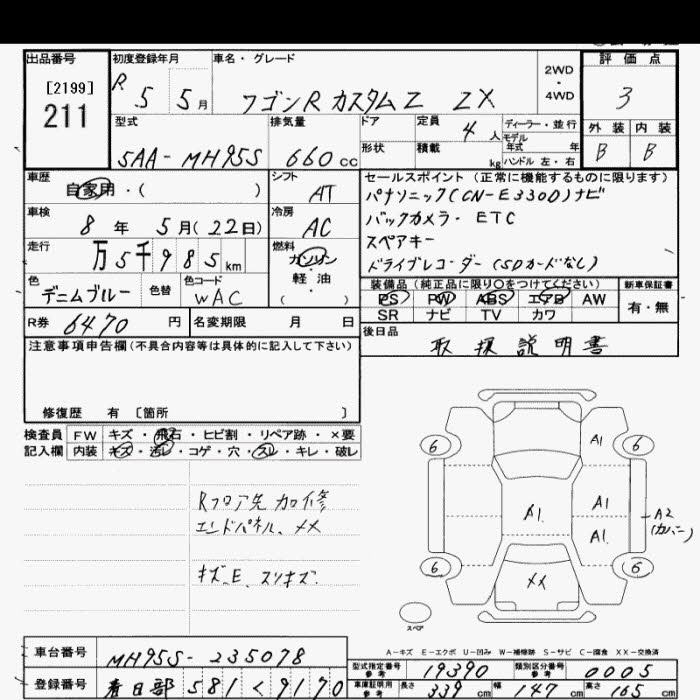 出品番号
[2199]
211
初度登録年月
R 5 5月
車名・グレード
ワゴンR カスタムZ ZX
2WD
・
4WD
評 価 点
3
型式
5AA-MH95S
排気量
660cc
ドア
形状
定員
4人
積載
kg
ディーラー・並行
モデル
年式 年
ハンドル 左・右
外 装 内 装
B B
車歴
自家用・( )
シフト
AT
車検
8年 5月(22日)
冷房
AC
走行
万5千985km
燃料
ガソリン
・
軽・油
( )
色
デニムブルー
色替
色コード
WAC
R券 6470円
名変期限 月 日
セールスポイント(正常に機能するものに限ります)
パナソニック(CN-E330D)ナビ
バックカメラ・ETC
スペアキー
ドライブレコーダー(SDカードなし)
装備品(純正品に限り○をつけてください)
新車保証書
PS PW ABS エアB AW
有・無
SR ナビ TV カワ
後日品
取扱説明書
注意事項申告欄(不具合内容等は具体的に記入して下さい)
修復歴 有 〔箇所 〕
検査員
記入欄
FW キズ・飛石・ヒビ割・リペア跡・×要
内装 キズ・汚レ・コゲ・穴・スレ・キレ・破レ
Rフロア先 加修
エンドパネル、XX
キズ、E、スリキズ
6 6
A1
A1 A1
A1
A2
(カバー)
6 6
XX
スペア
A-キズ E-エクボ U-凹み W-補修跡 S-サビ C-腐食 XX-交換済
車台番号
MH95S-235078
登録番号
春日部 581 く 9170
型式指定番号
参考
19390
類別区分番号
参考
0005
車庫証明用
参考
長さ 339cm 幅 147cm 高さ 165cm